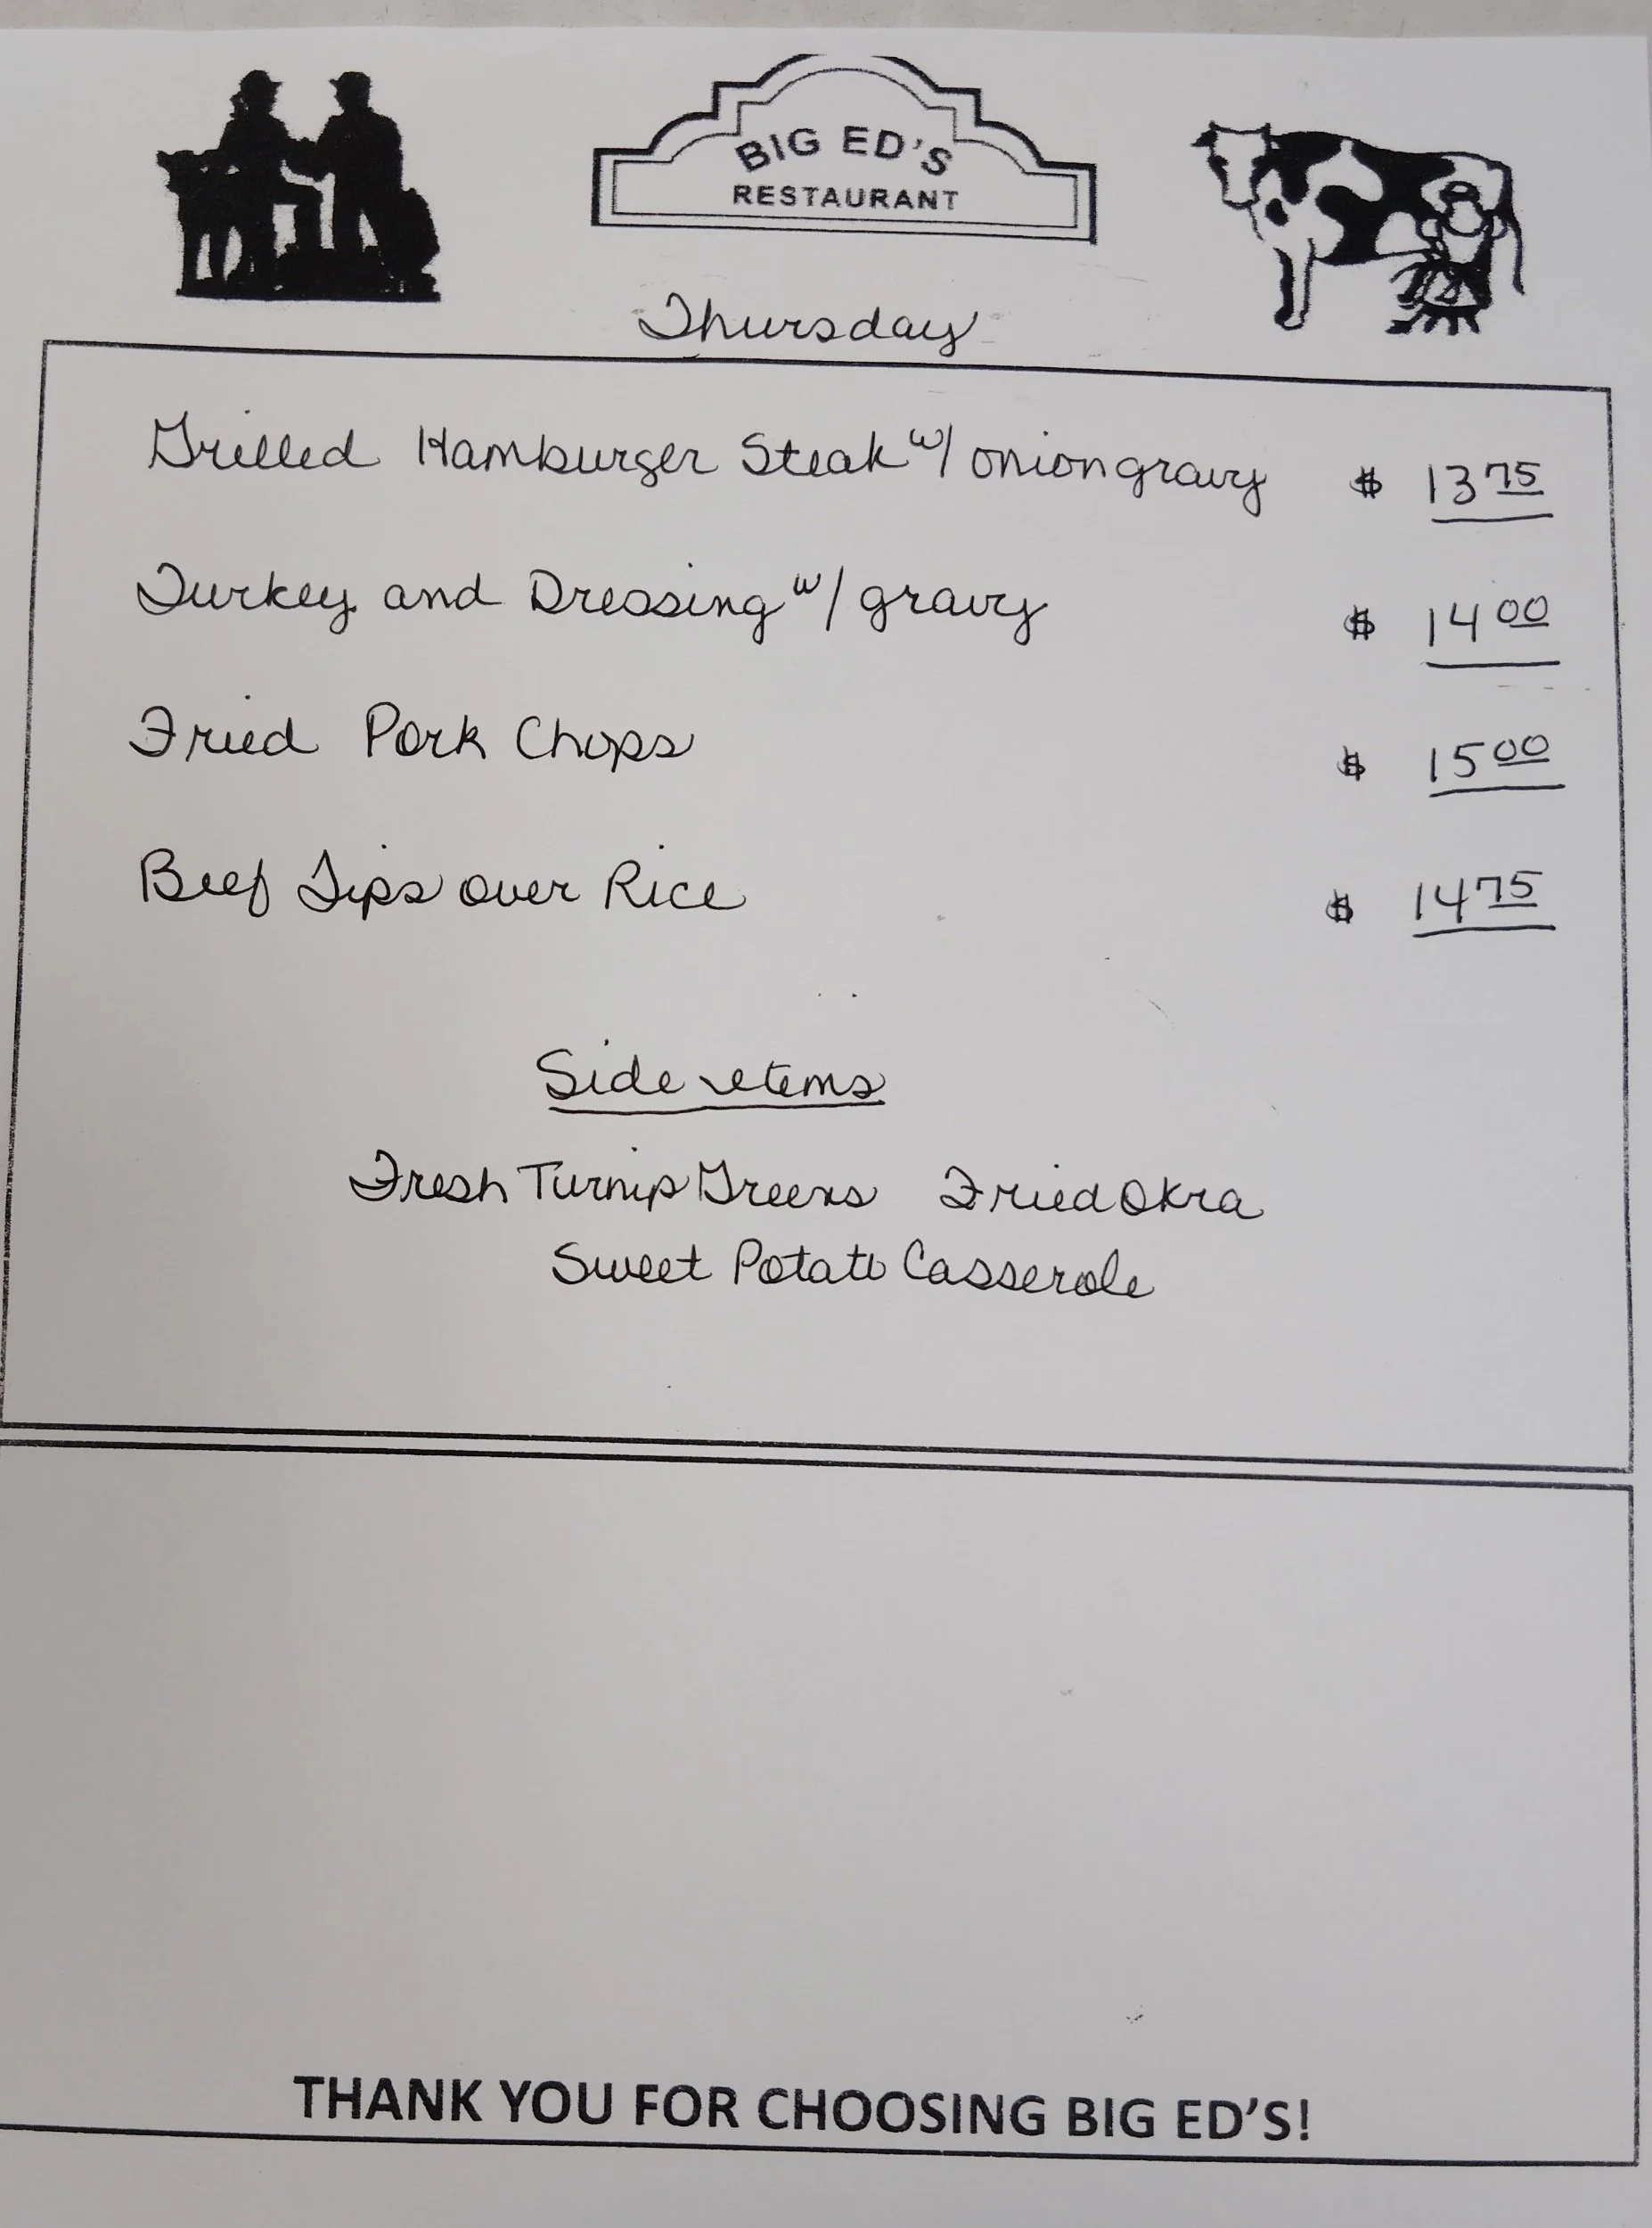 BIG ED'S
RESTAURANT
Thursday
Grilled Hamburger Steak w/ onion gravy $ 13 75
Turkey and Dressing w/ gravy $ 14 00
Fried Pork Chops $ 15 00
Beef Tips over Rice $ 14 75
Side items
Fresh Turnip Greens Fried Okra
Sweet Potato Casserole
THANK YOU FOR CHOOSING BIG ED'S!